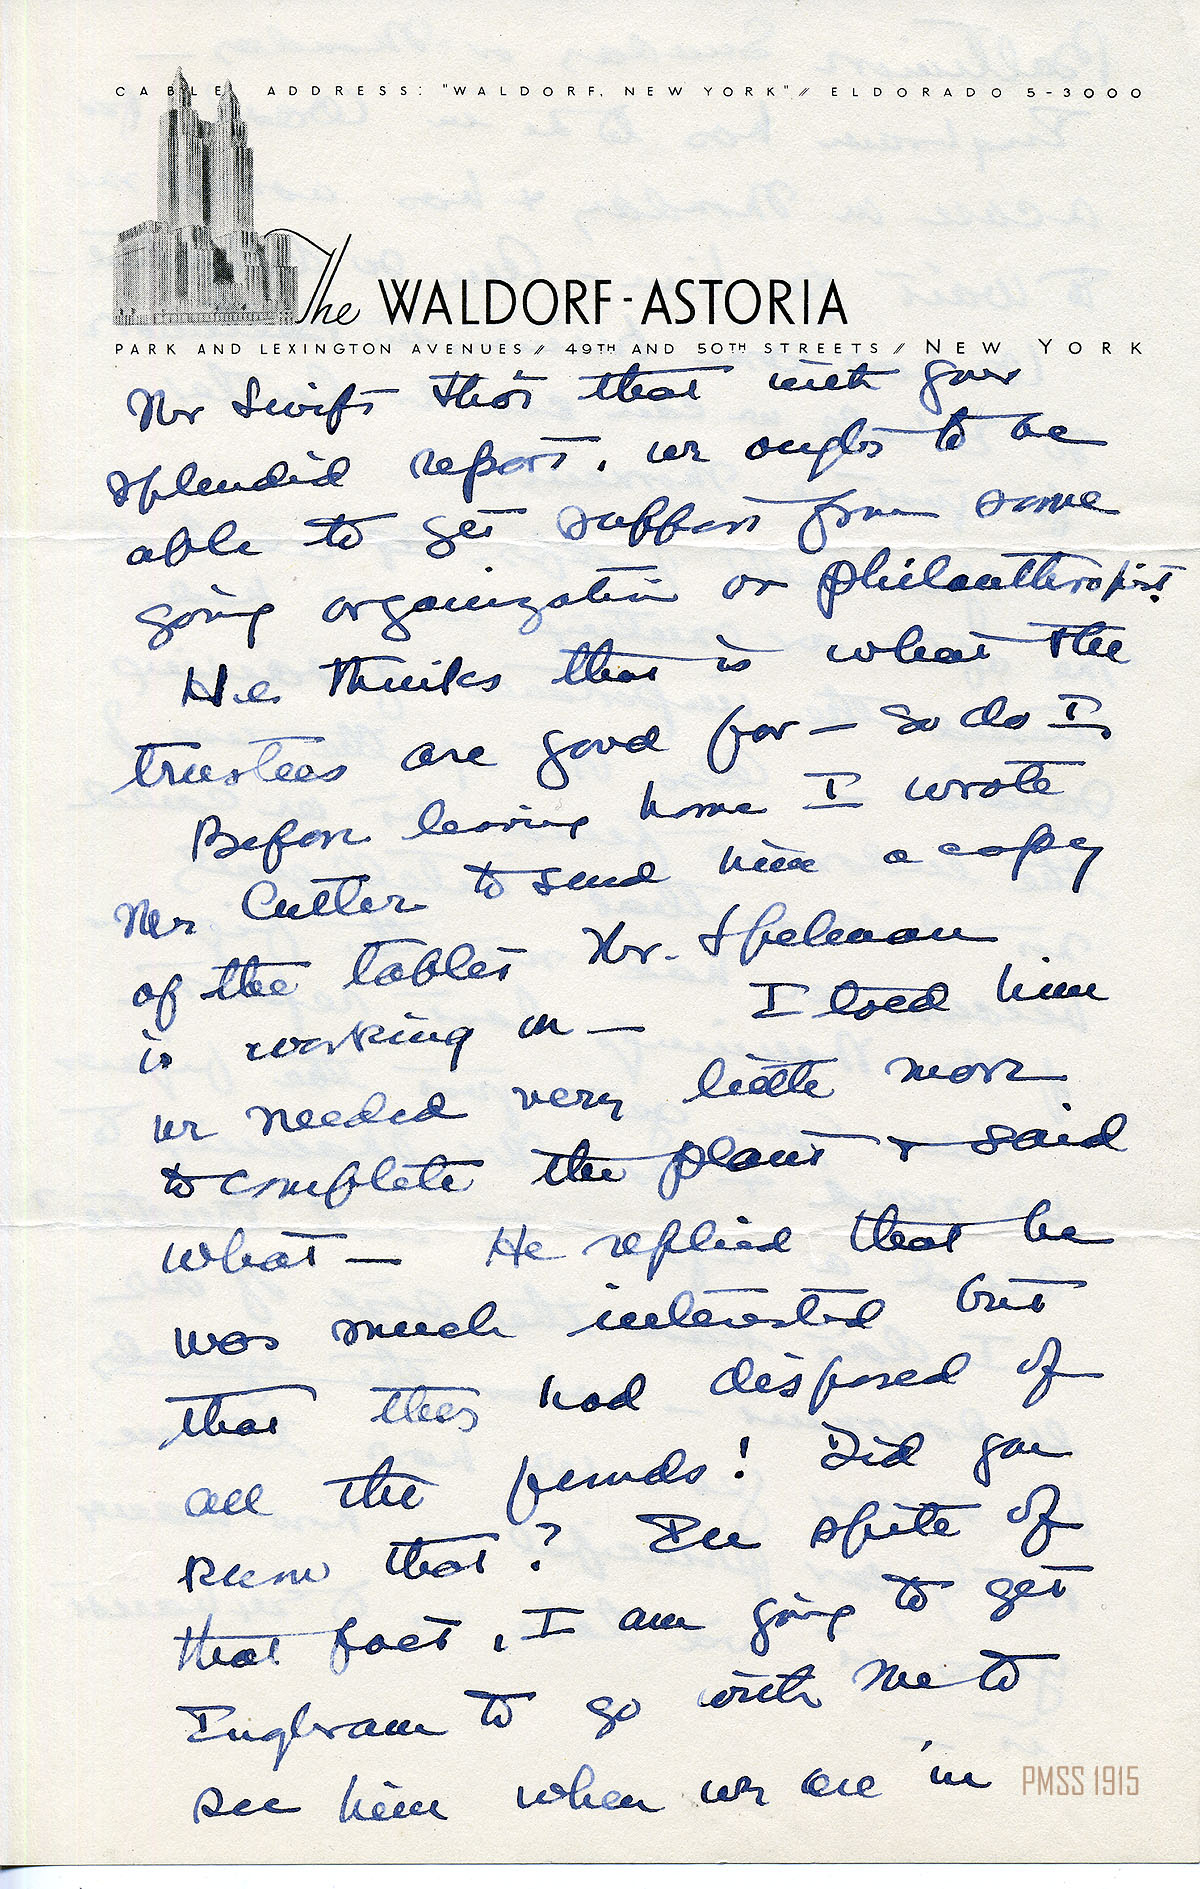 CABLE ADDRESS: "WALDORF, NEW YORK" // ELDORADO 5-3000
The WALDORF-ASTORIA
PARK AND LEXINGTON AVENUES // 49TH AND 50TH STREETS // NEW YORK
Mr Swift tho't that with your
splendid report, we ought to be
able to get support from some
going organization or philanthropist.
He thinks that is what the
trustees are good for — So do I.
Before leaving home I wrote
Mr Cutler to send him a copy
of the tables Mr. Spelman
is working on — I told him
we needed very little more
to complete the plant & said
what — He replied that he
was much interested but
that they had disposed of
all the funds! Did you
know that? In spite of
that fact, I am going to get
Ingbram to go with me to
see him when we are in
PMSS 1915